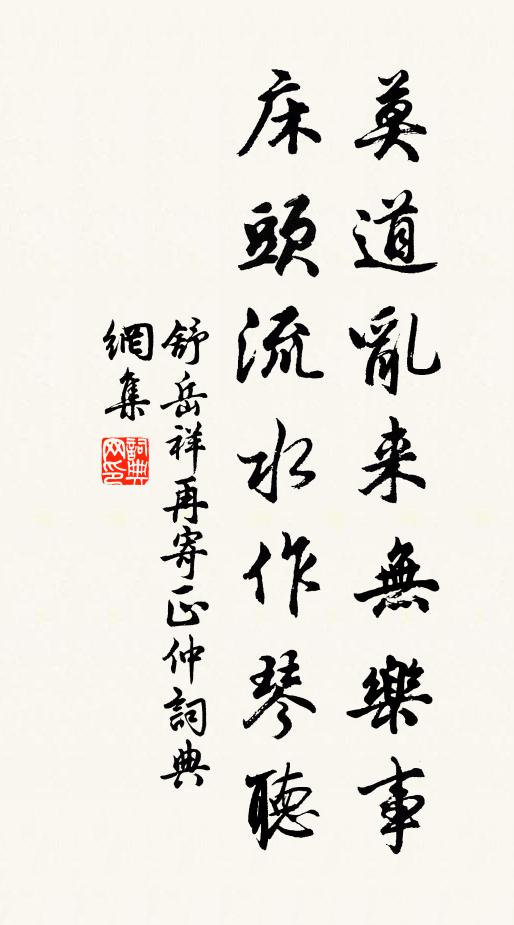 莫道亂来無樂事
床頭流水作琴聽
舒岳祥再寄正仲詞典
網集
詞典網印